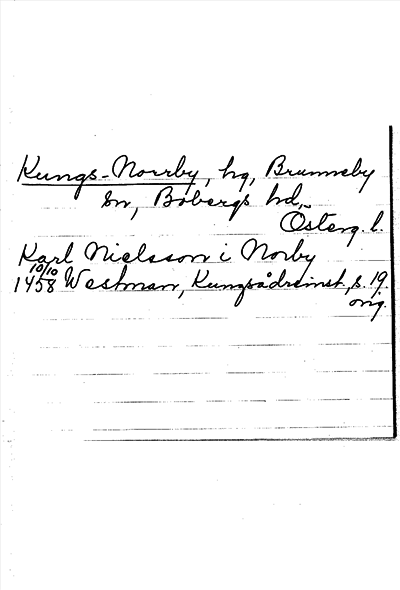 Kungs-Norrby, hg, Brunneby
sn, Bobergs hd,
Österg. l.
Karl Nielsson i Norby
10/10
1458 Westman, Kungsådreinst, s. 19.
orig.